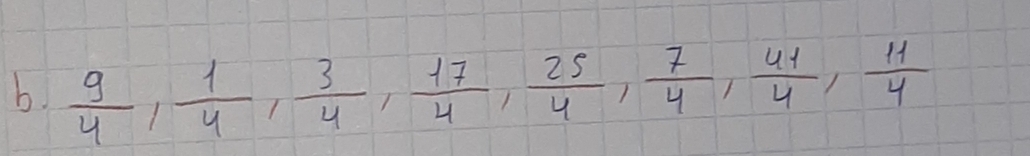 b. 9/4, 1/4, 3/4, 17/4, 25/4, 7/4, 41/4, 11/4